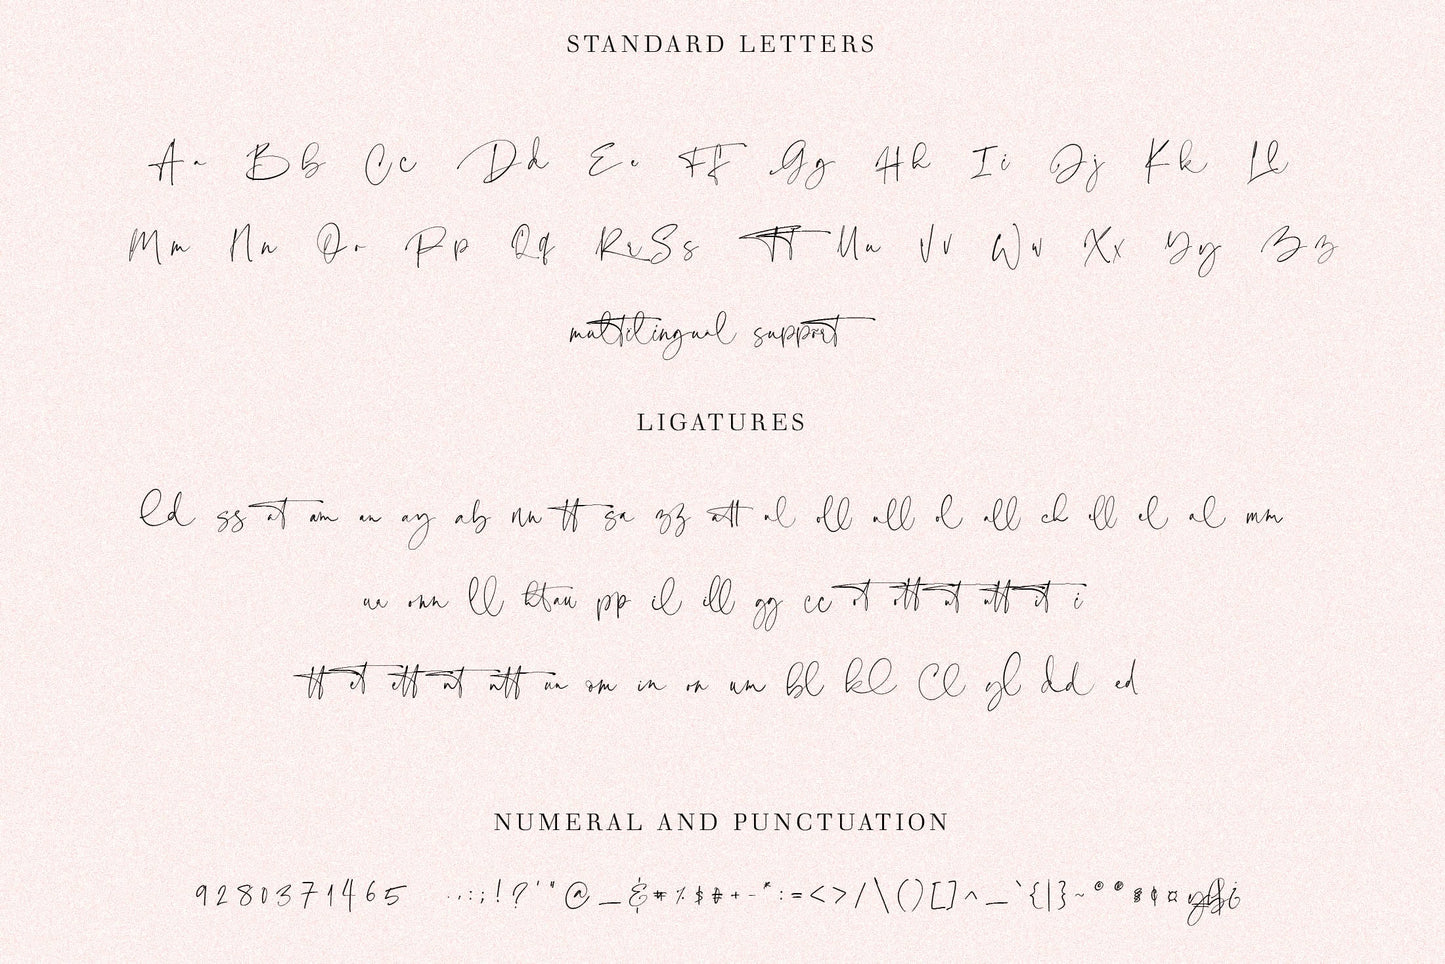 STANDARD LETTERS
Aa Bb Cc Dd Ee Ff Gg Hh Ii Jj Kk Ll
Mm Nn Oo Pp Qq Rr Ss Tt Uu Vv Ww Xx Yy Zz
multilingual support
LIGATURES
ld ss at am an ay ab nn tt sa zz att al oll all ol all ch ell el al mm
onn ll pp il ill gg cc ot ott ut utt it i
tt et ett nt ntt om in on um bl kl Cl yl dd ed
NUMERAL AND PUNCTUATION
9280371465 .,:;!?'"@_&#%$ +-*:=<>/\()[]^_`{|}~